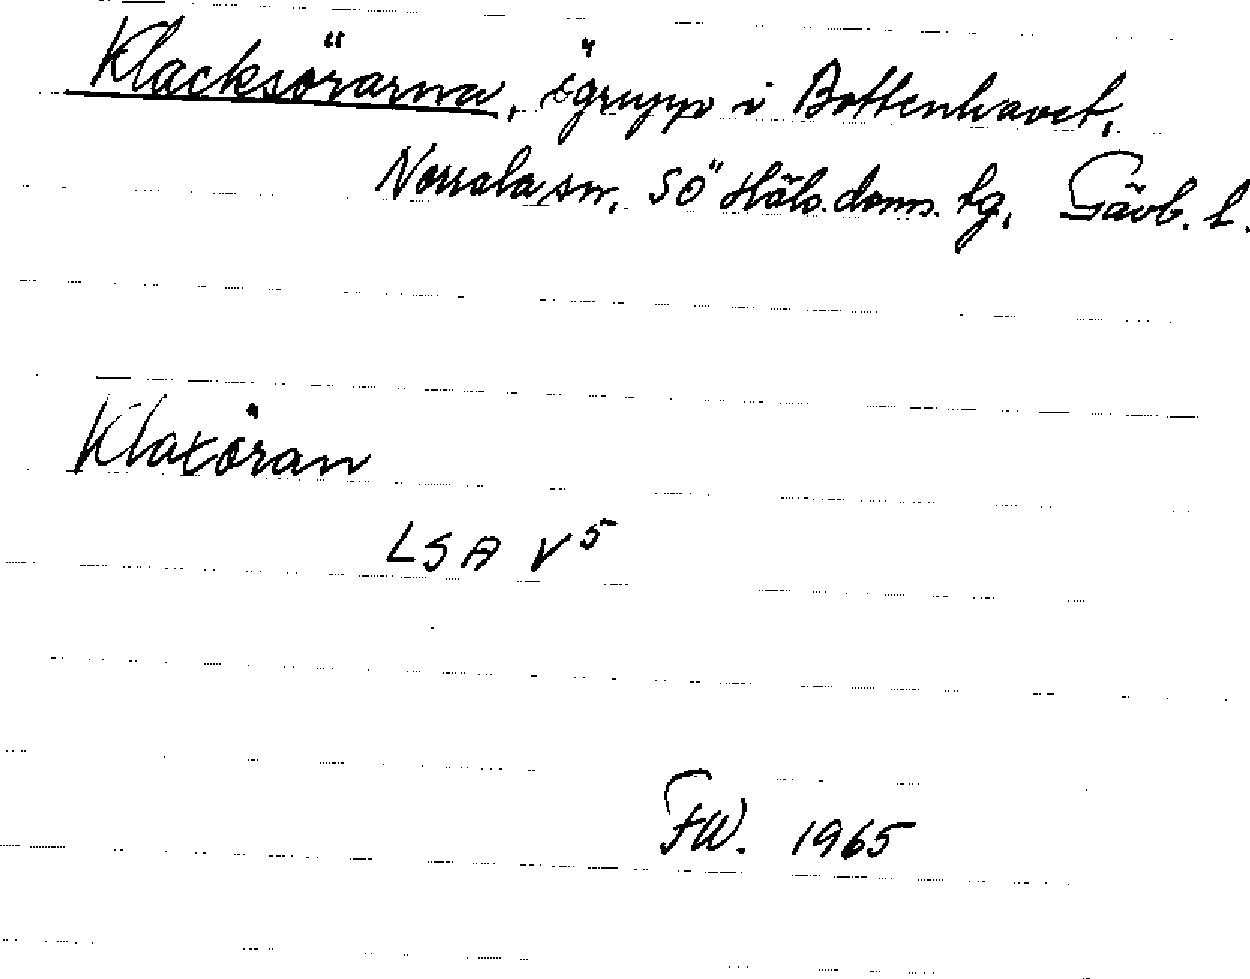 Klacksörarna, ögrupp i Bottenhavet,
Norrala sn, SÖ Häls. doms. tg, Gävb. l.
Klaxöran
LSA V5
FW. 1965